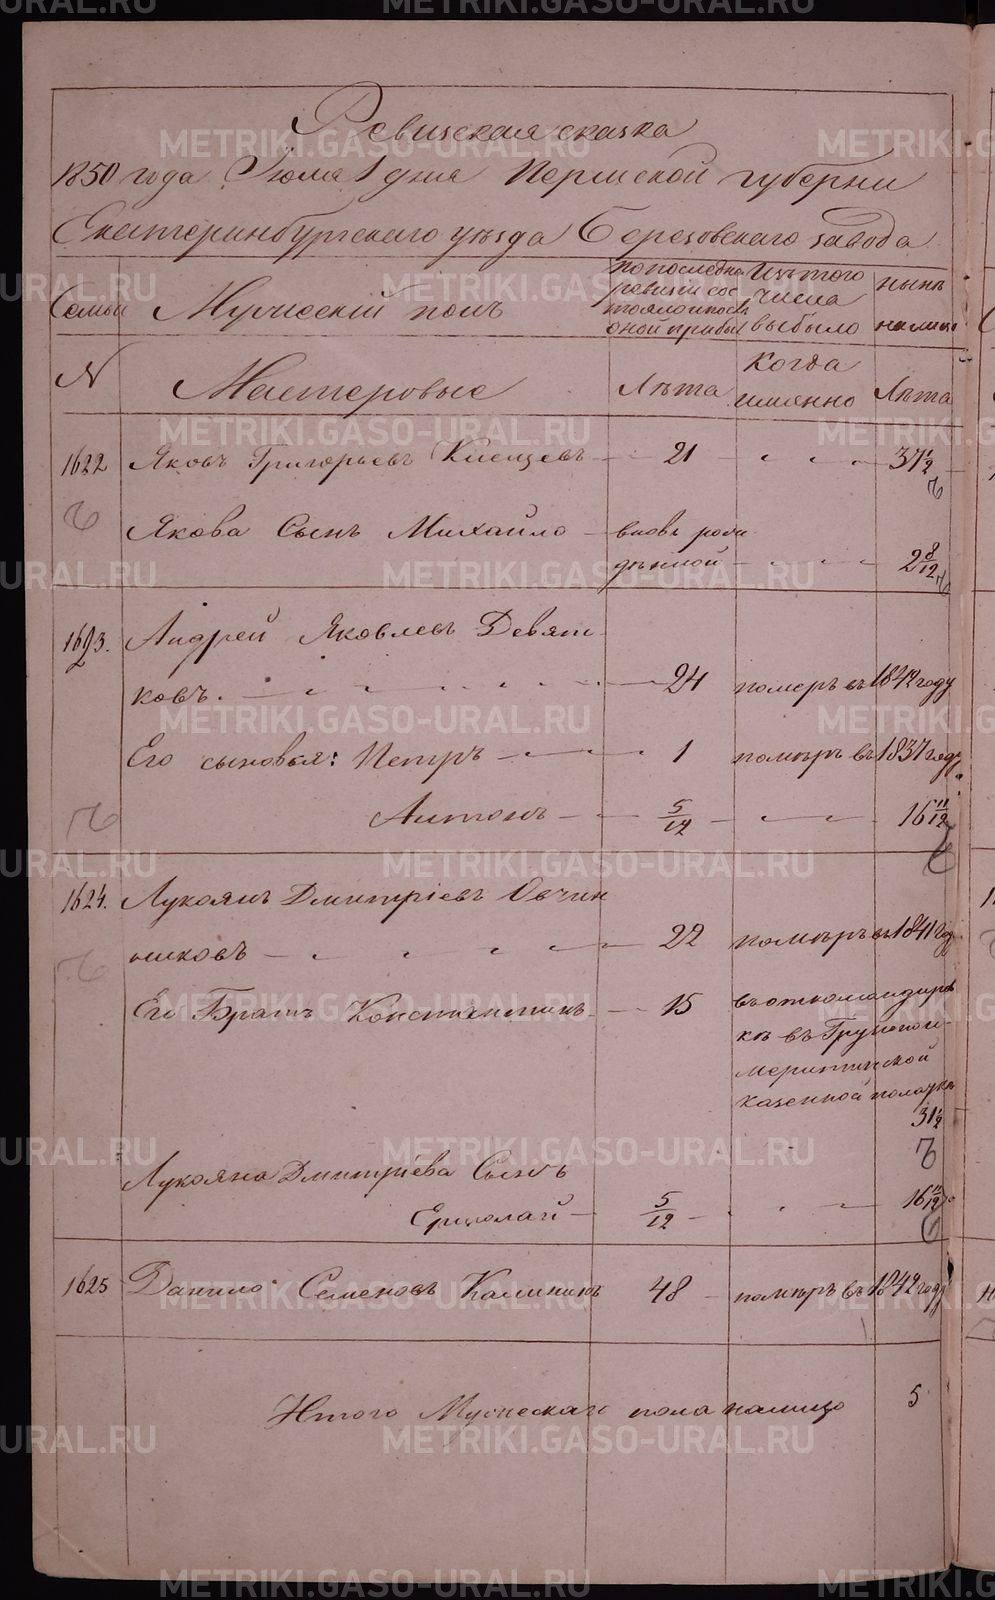 Ревизская сказка
1850 года Июля 1 дня Пермской губернии
Екатеринбургского уѣзда Березовского завода
Семьи Мужескій полъ
по последней ревизіи состояло и после оной прибыло
Изъ того числа выбыло
нынѣ на лицо
N Мастеровые Лѣта Когда именно Лѣта
1622 Яковъ Григорьевъ 21 37 1/2
Якова Сынъ Михайло вновь рож
денной 2 8/12
1623. Андрей Яковлевъ Девят
ковъ. 24 померъ въ 1842 году
Его сыновья: Петръ 1 померъ въ 1837 году
Антонъ 5/12 16 11/12
1624. Лукоянъ Дмитріевъ Овчин
никовъ 22 помѣръ въ 1841 году
Его Братъ Константинъ 15 въ откомандиров
кѣ въ
казенной
31 1/2
Лукояна Дмитріева Сынъ
Ермолай 5/12 16 11/12
1625 Данило Семеновъ Калининъ 48 помѣръ въ 1842 году
Итого Мужеска пола налицо 5
METRIKI.GASO-URAL.RU